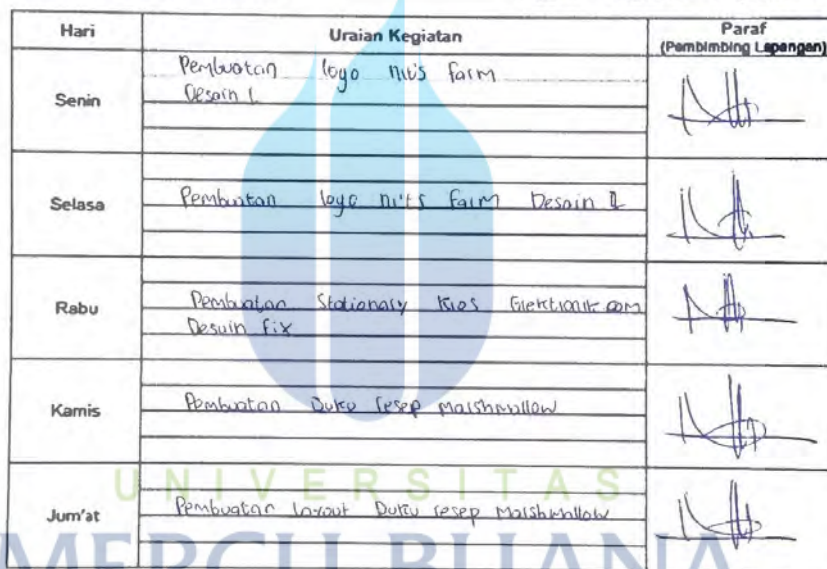 Hari Uraian Kegiatan Paraf
(Pembimbing Lapangan)
Senin Pembuatan logo nit's farm
Desain 1
Selasa Pembuatan logo nit's farm Desain 2
Rabu Pembuatan Stationary Kios Elektronik.com
Desain fix
Kamis Pembuatan Buku resep marshmallow
Jum'at Pembuatan Layout Buku resep Marshmallow
UNIVERSITAS
MERCU BUANA